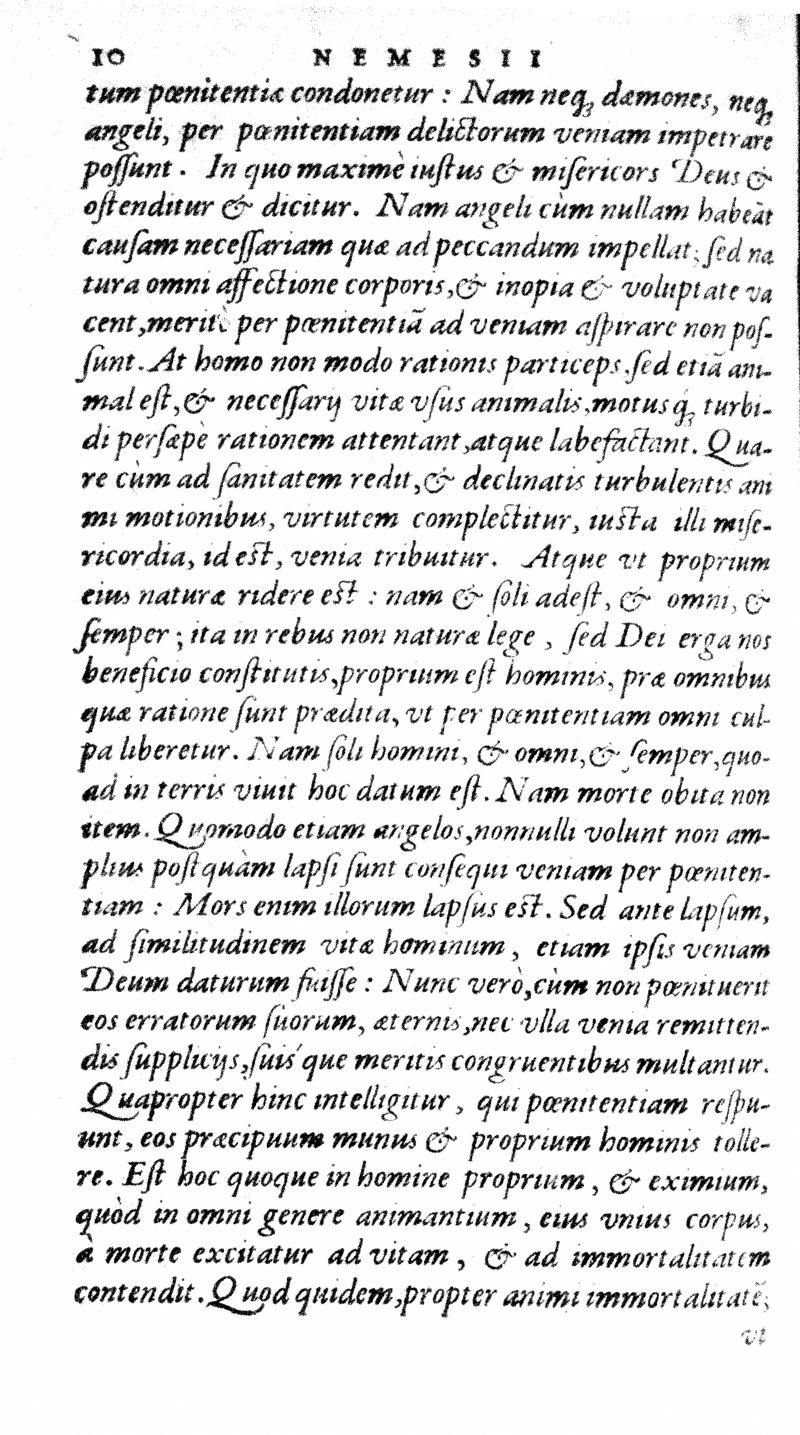 10 NEMESII
tum pœnitentiæ condonetur : Nam neq; dæmones, neq;
angeli, per pœnitentiam delictorum veniam impetrare
possunt. In quo maximè iustus & misericors Deus &
ostenditur & dicitur. Nam angeli cùm nullam habeāt
causam necessariam quæ ad peccandum impellat; sed na
tura omni affectione corporis,& inopia & voluptate va
cent,meritè per pœnitentiā ad veniam aspirare non pos-
sunt. At homo non modo rationis particeps,sed etiā ani-
mal est,& necessarij vitæ vsus animalis,motusq; turbi-
di persæpè rationem attentant,atque labefactant. Qua-
re cùm ad sanitatem redit,& declinatis turbulentis ani
mi motionibus, virtutem complectitur, iusta illi mise-
ricordia, id est, venia tribuitur. Atque vt proprium
eius naturæ ridere est : nam & soli adest, & omni, &
semper ; ita in rebus non naturæ lege , sed Dei erga nos
beneficio constitutis,proprium est hominis, præ omnibus
quæ ratione sunt prædita, vt per pœnitentiam omni cul-
pa liberetur. Nam soli homini, & omni,& semper,quo-
ad in terris viuit hoc datum est. Nam morte obita non
item. Quomodo etiam angelos,nonnulli volunt non am-
plius postquàm lapsi sunt consequi veniam per pœniten-
tiam : Mors enim illorum lapsus est. Sed ante lapsum,
ad similitudinem vitæ hominum , etiam ipsis veniam
Deum daturum fuisse : Nunc verò,cùm non pœnituerit
eos erratorum suorum, æternis,nec vlla venia remitten-
dis supplicijs,suis´que meritis congruentibus multantur.
Quapropter hinc intelligitur , qui pœnitentiam respu-
unt, eos præcipuum munus & proprium hominis tolle-
re. Est hoc quoque in homine proprium , & eximium,
quòd in omni genere animantium , eius vnius corpus,
à morte excitatur ad vitam , & ad immortalitatem
contendit. Quod quidem,propter animi immortalitatē;
vt